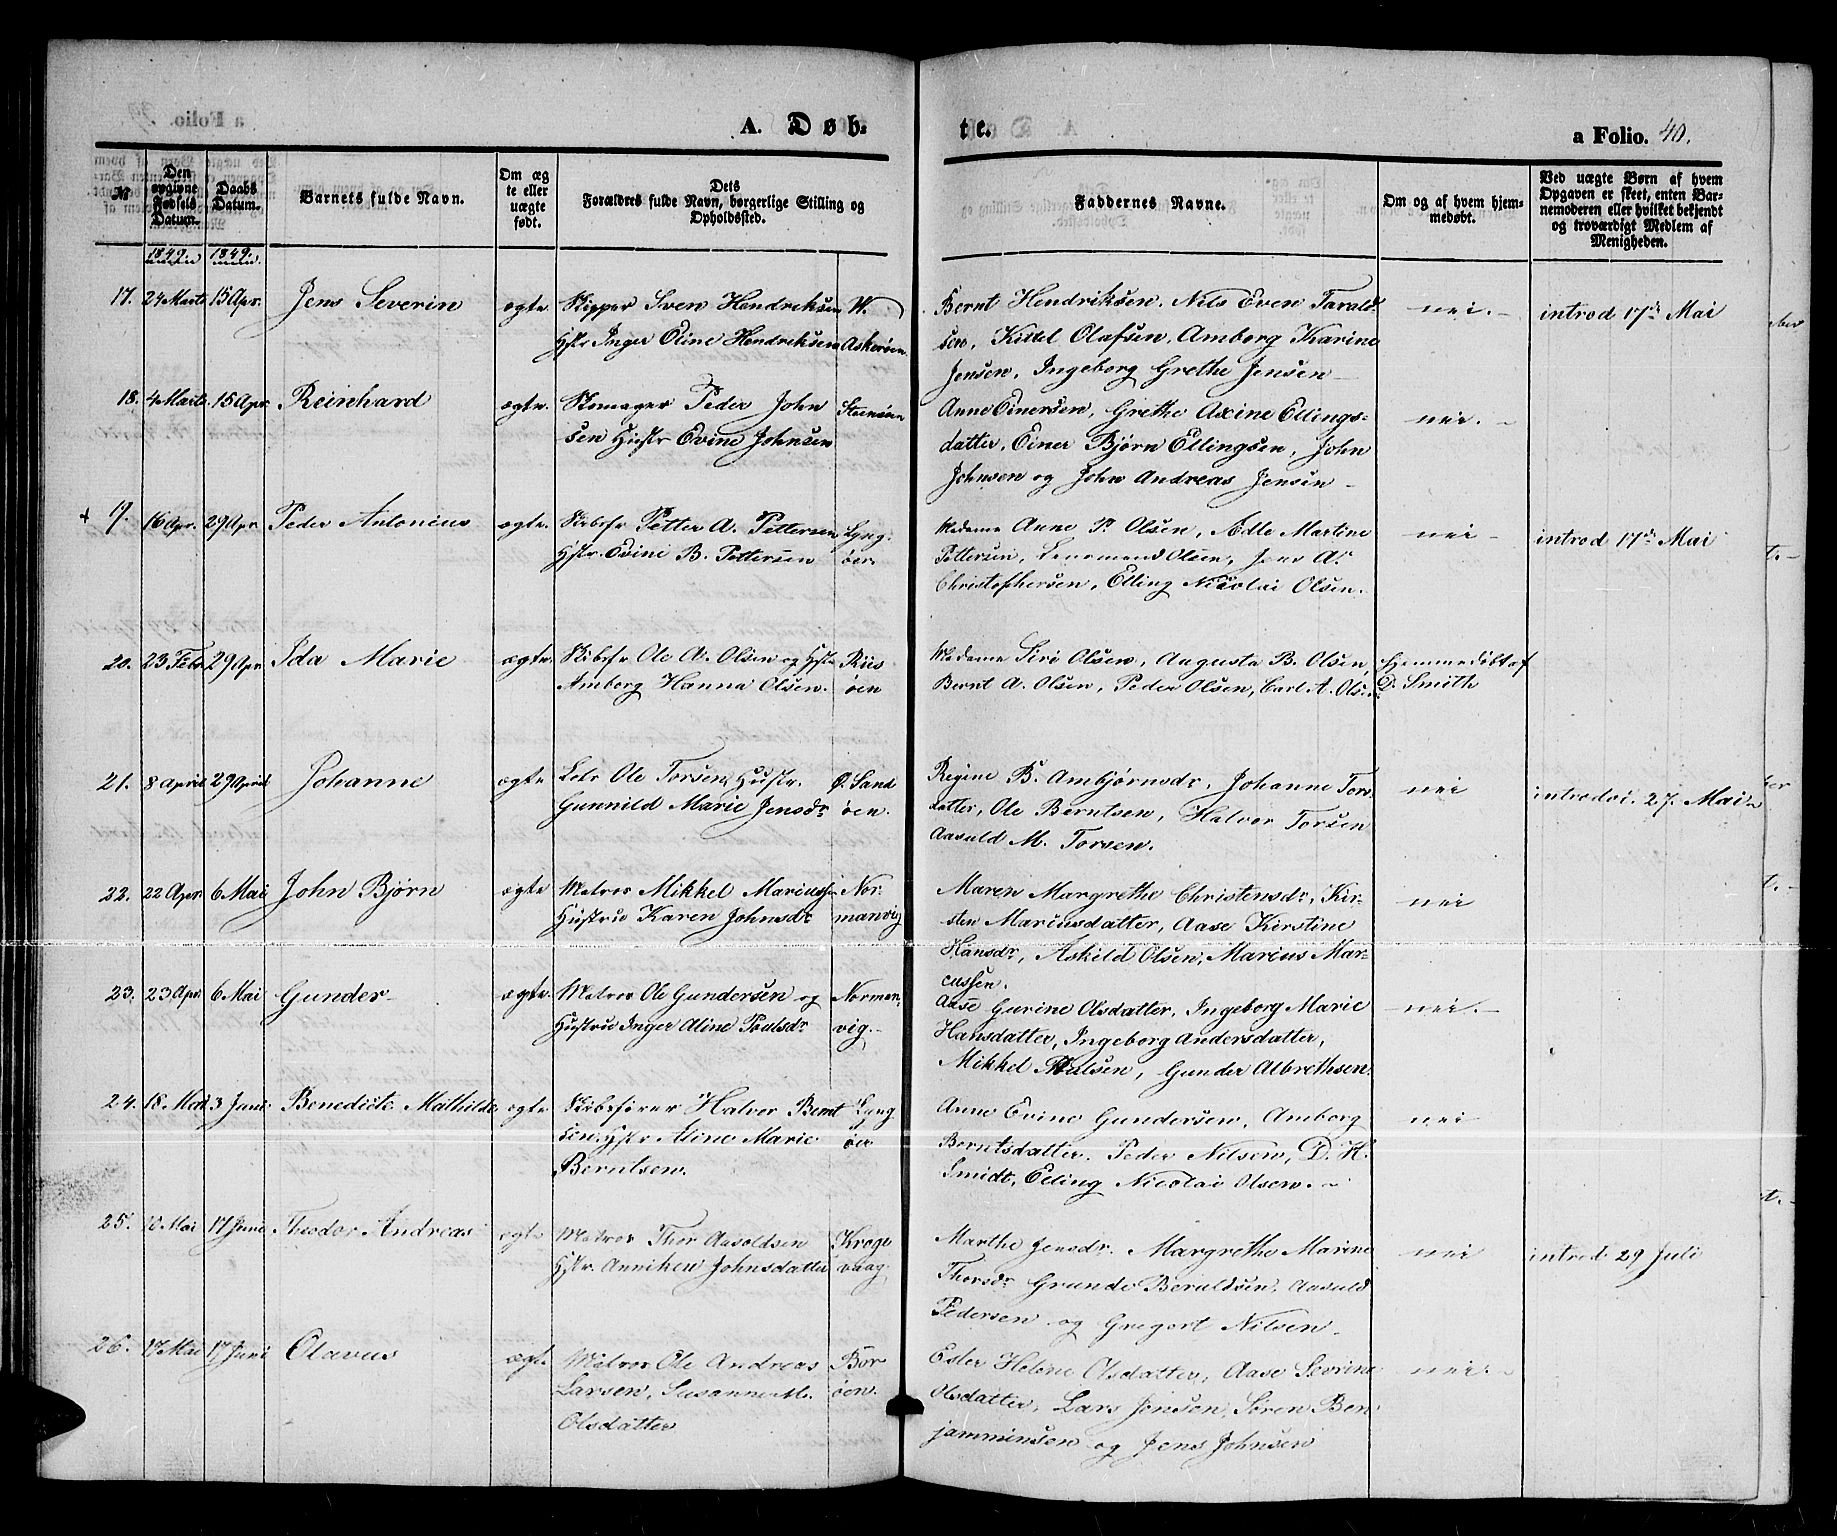 A. Døb-
te.
a Folio. 40.
№
Den opgivne Fødsels Datum.
Daabs Datum.
Barnets fulde Navn.
Om æg te eller uægte født.
Dets Forældres fulde Navn, borgerlige Stilling og Opholdssted.
Faddernes Navne.
Om og af hvem hjem- medøbt.
Ved uægte Børn af hvem Opgaven er skeet, enten Bar- nemoderen eller hvilket bekjendt og troværdigt Medlem af Menigheden.
1849. 1849.
17. 24 Marts 15 Apr. Jens Severin ægte. Skipper Sven Hendriksen W.
Hstr Inger Oline Hendriksen Askerøen
Bernt Hendriksen, Nils Even Tarald-
sen, Kittel Olafsen, Amborg Karine
Jensen, Ingeborg Grethe Jensen
nei. introd 17de Mai
18. 4 Marts 15 Apr Reinhard ægte. Skomager Peder John
sen Hustr Evine Johnsen
Anne Einersen, Grethe Axine Ellings-
datter, Einer Bjørn Ellingsen, John
Johnsen og John Andreas Jensen
nei.
+ 19. 16 Apr. 29 Apr Peder Antonius ægte. Skibsfr Petter A. Pettersen Lyng-
Hstr. Evine B. Pettersen øer
Madame Anne P. Olsen, Adle Martine
Pettersen, Olsen, Jens A.
Christophersen, Elling Nicolai Olsen.
nei introd 17de Mai
20. 23 Febr 29 Apr. Ida Marie ægte. Skibsfr Ole A. Olsen og Hstr Riis
Amborg Hanna Olsen. øen
Madame Siri Olsen, Augusta B. Olsen
Bernt A. Olsen, Peder Olsen, Carl A. Olsen
Hjemmedøbt af
D. Smith
21. 8 April 29 April Johanne ægte Lots Ole Torsen, Hustr. Ø. Sand
Gunnild Marie Jensdr øen.
Regine B. Ambjørnsdr, Johanne Tors-
datter, Ole Berntsen, Halvor Torsen
Aasuld M. Torsen.
nei introd 27. Mai
22. 22 Apr. 6 Mai John Bjørn ægte Matros Mikkel Mariussen Nor-
Hustrue Karen Johnsdr manvig
Maren Margrethe Christensdr, Kir-
sten Mariusdatter, Aase Kirstine
Hansdr, Askild Olsen, Marius Mar-
cussen.
nei
23. 23 Apr 6 Mai Gunder ægte. Matros Ole Gundersen og Norman-
Hustrue Inger Aline Poulsdr vig.
Aase Gurine Olsdatter, Ingeborg Marie
Hansdatter, Ingeborg Andersdatter,
Mikkel Poulsen, Gunder Albrethsen
nei.
24. 18 Mai 3 Juni Benedicte Mathilde ægte Skibsfører Halvor Bernt Lyng
sen. Hstr Aline Marie øer
Berntsen.
Anne Evine Gundersen, Amborg
Berntsdatter. Peder Nilsen, D. H.
Smidt, Elling Nicolai Olsen.
nei
25. 10 Mai 17 Juni Theodor Andreas ægte Matros Thor Aasoldsen Krage
Hstr. Anniken Johnsdatter vaag
Marthe Jensdr. Margrethe Marine
Thorsdr Grunde Beruldsen, Aasuld
Pedersen og Gregort Nilsen
nei introd 29 Juli
26. 17 Mai 17 Juni Olavus ægte Matros Ole Andreas Bor
Larsen, Susanne M. øen.
Olsdatter
Ester Helene Olsdatter, Aase Sevrine
Olsdatter, Lars Jensen, Søren Ben-
jaminsen og Jens Johnsen
nei.